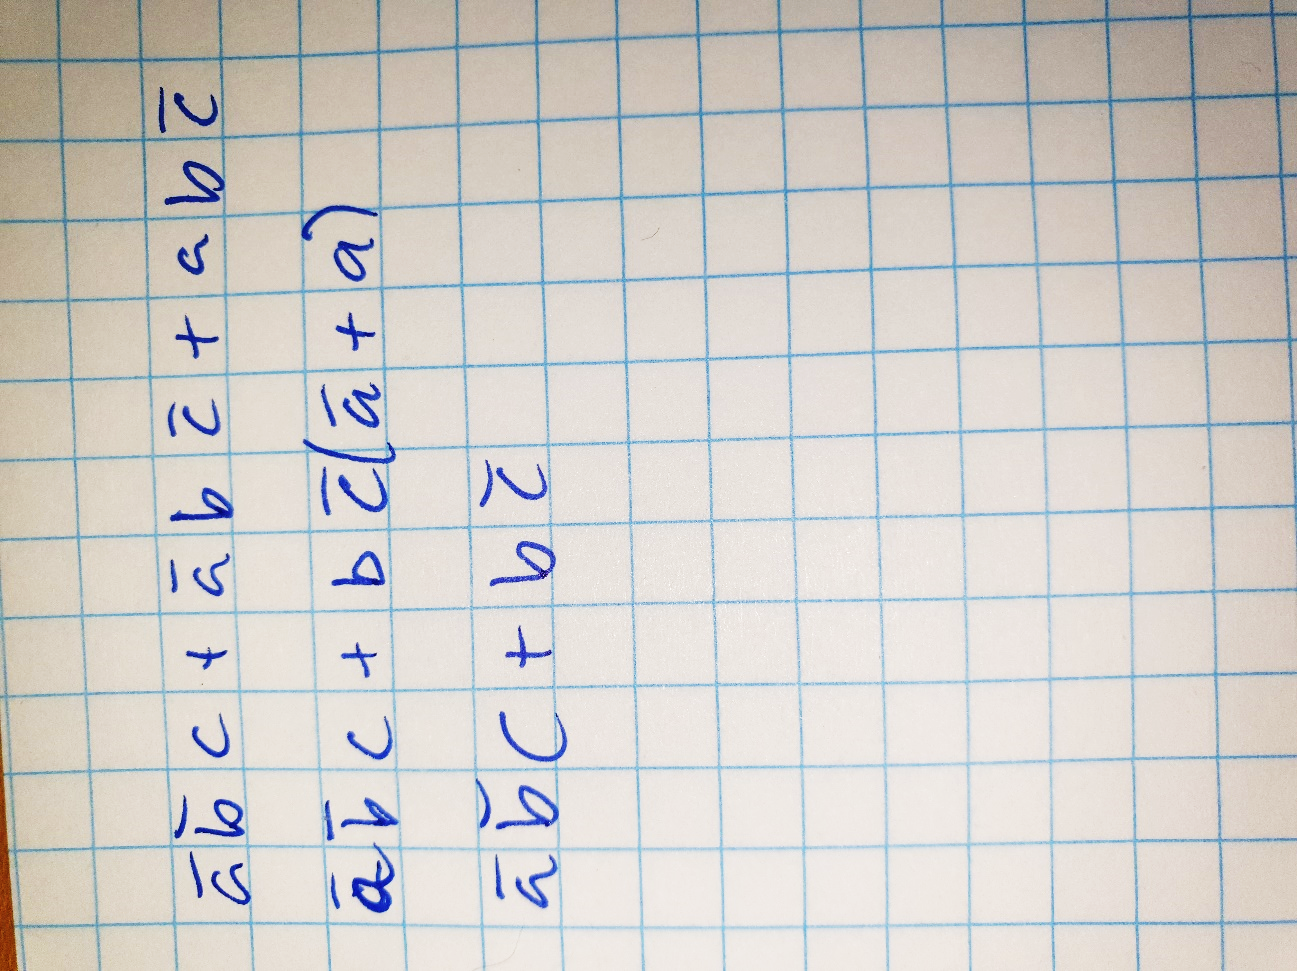 a̅ b̅ c + a̅ b c̅ + a b c̅
a̅ b̅ c + b c̅ (a̅ + a)
a̅ b̅ c + b c̅